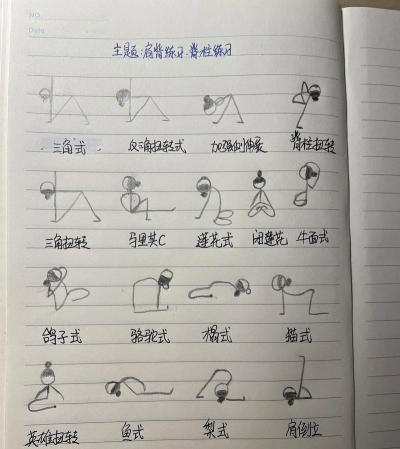 NO.
Date
主题:肩背练习.脊柱练习
三角式 反三角扭转式 加强侧伸展 脊柱扭转
三角扭转 马里其C 莲花式 闭莲花 牛面式
鸽子式 骆驼式 榻式 猫式
英雄扭转 鱼式 犁式 肩倒立